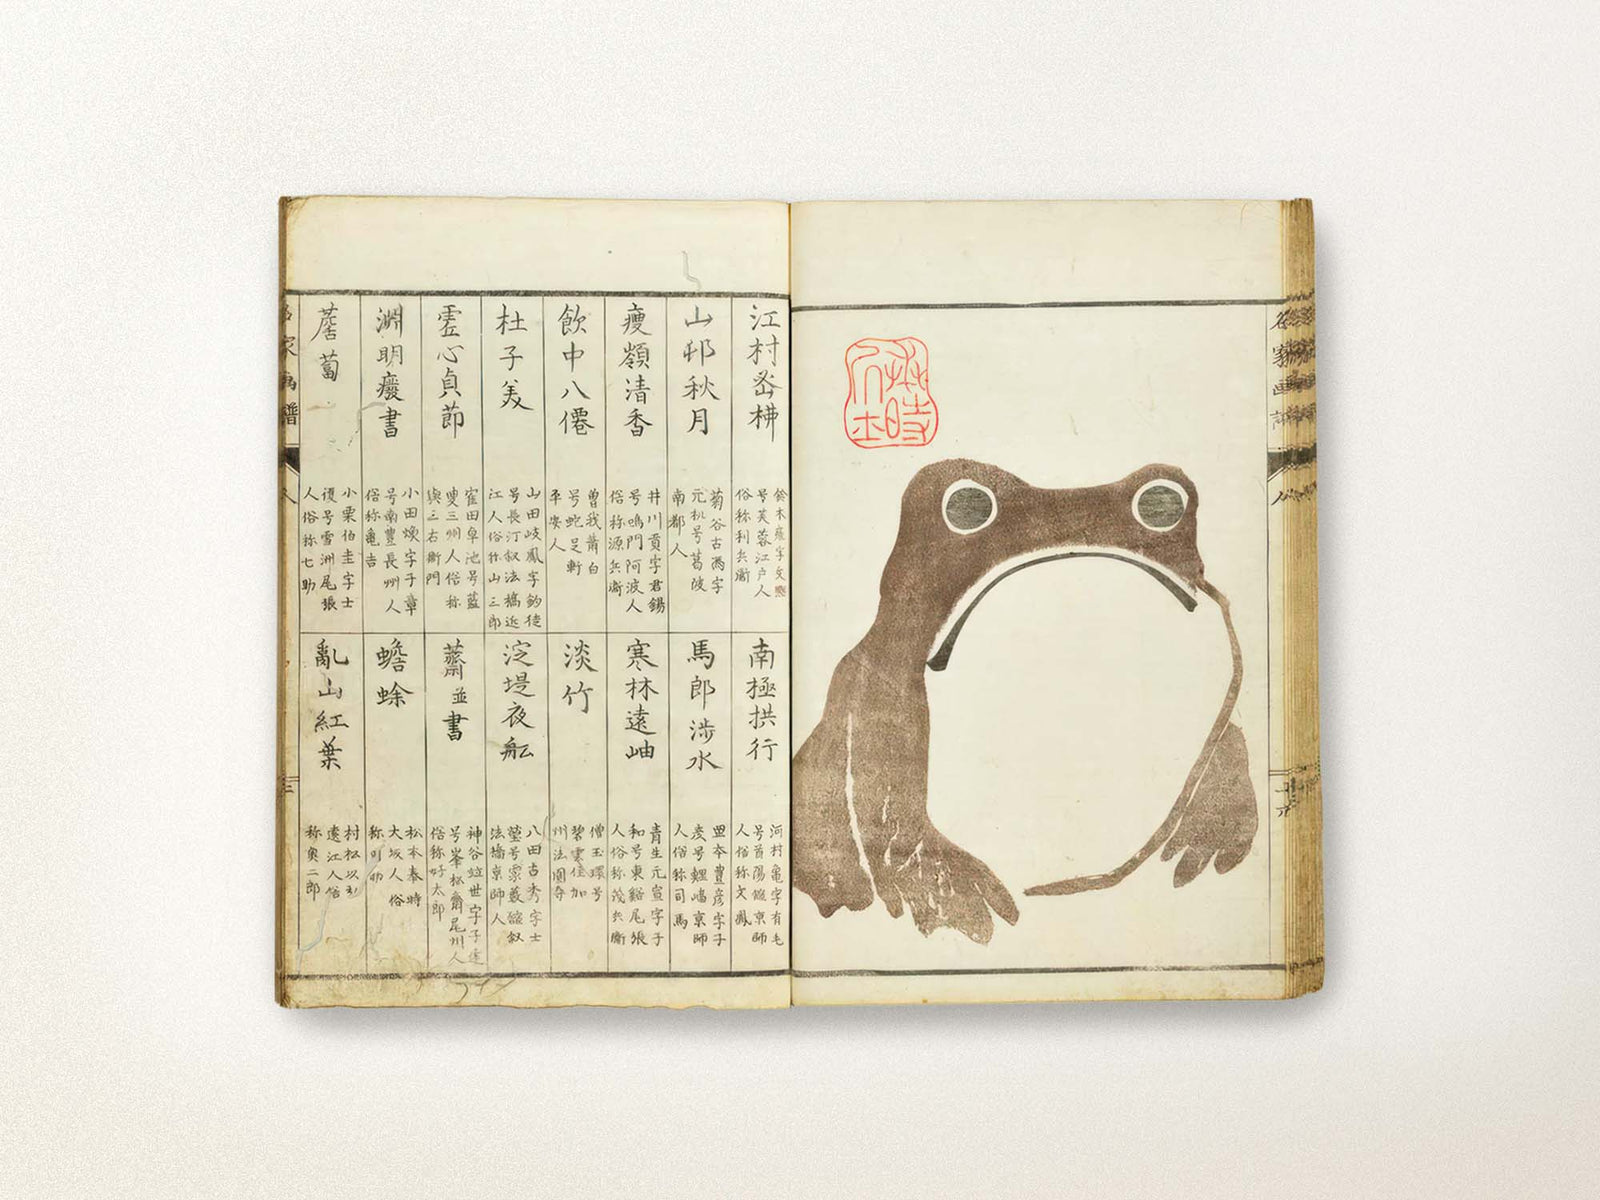 江村密梻
鈴木雍字文熈
号芙蓉江戸人
俗称利兵衞
山邨秋月
菊谷古馮字
元札号葛陂
南都人
瘦嶺清香
井川貢字君錫
号鳴門阿波人
俗称源兵衞
飲中八僊
曽我蕭白
号蛇足軒
平安人
杜子美
山田岐鳳字鈞徒
号長汀叙法橋近
江人俗称山三郎
霊心貞節
隺田卓池号藍
叟三州人俗称
與三右衞門
淵明癈書
小田煥字子章
号南豊長州人
俗称亀吉
薝蔔
小栗伯圭字士
復号雪洲尾張
人俗称七助
南極拱行
河村亀字有毛
号首陽館京師
人俗称文鳳
馬郎涉水
豊彦字子
彦号鯉喦京師
人俗称司馬
寒林遠岫
青生元宣字子
和号東谿尾張
人俗称茂兵衞
淡竹
僧玉環号
碧雲住加
州法圓寺
淀堤夜舩
八田古秀字士
瑩号家藪館叙
法橋京師人
蘭並書
神谷 世字子遠
号峯松斎尾州人
俗称好太郎
蟾蜍
松本奉時
大坂人俗
称 助
亂山紅葉
村松以弘
遠江人俗
称與二郎
名家画譜
人
奉時